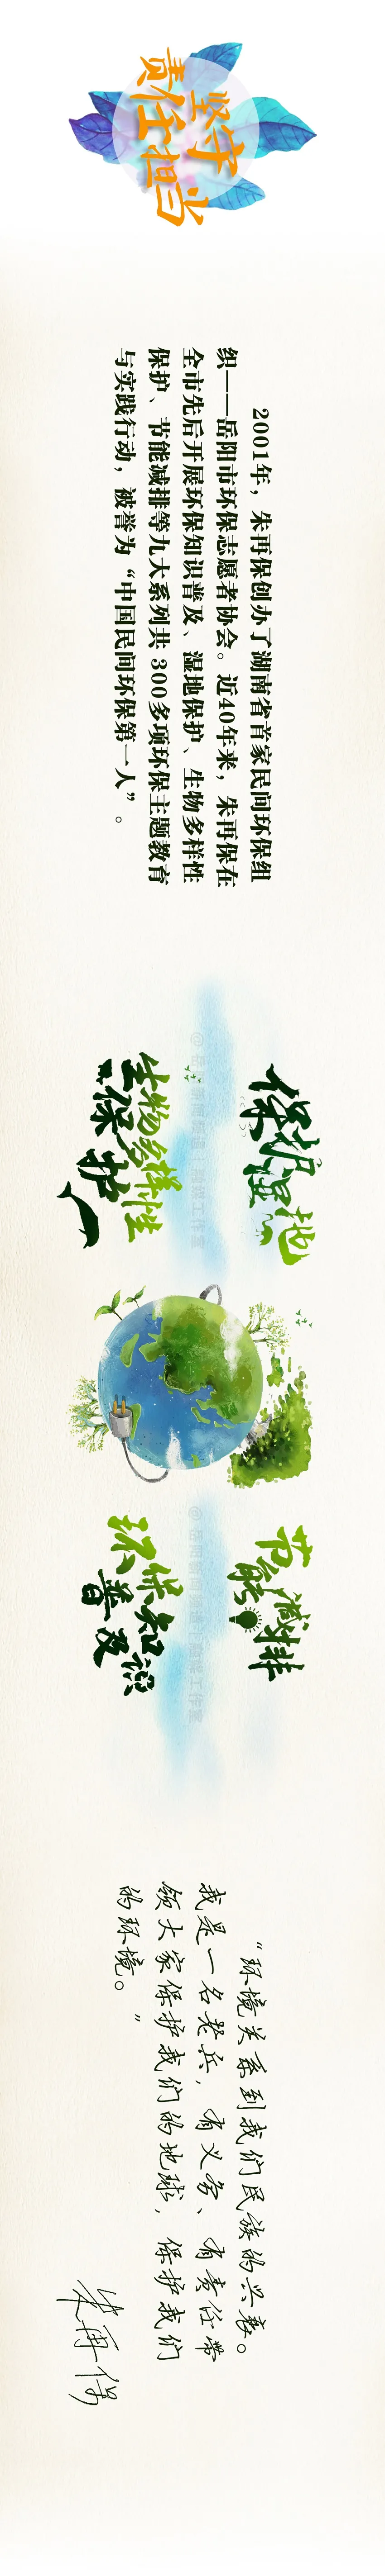 坚守
责任担当
2001年，朱再保创办了湖南省首家民间环保组
织——岳阳市环保志愿者协会。近40年来，朱再保在
全市先后开展环保知识普及、湿地保护、生物多样性
保护、节能减排等九大系列共 300多项环保主题教育
与实践行动，被誉为“中国民间环保第一人”。
保护
湿地
生物多样性
保护
节能减排
环保知识
普及
“环境关系到我们民族的兴衰。
我是一名老兵，有义务、有责任带
领大家保护我们的地球，保护我们
的环境。”
朱再保